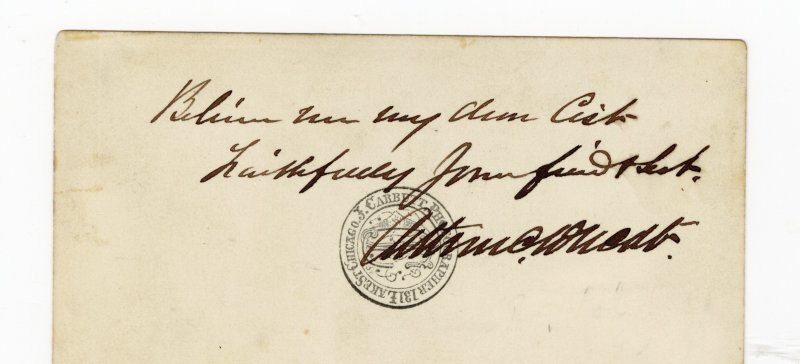 Believe me my dear Cist
Faithfully Your friend & Svt.
Arthur C. Ducat.
J. CARBUTT, PHOTOGRAPHER 131 LAKE ST CHICAGO.